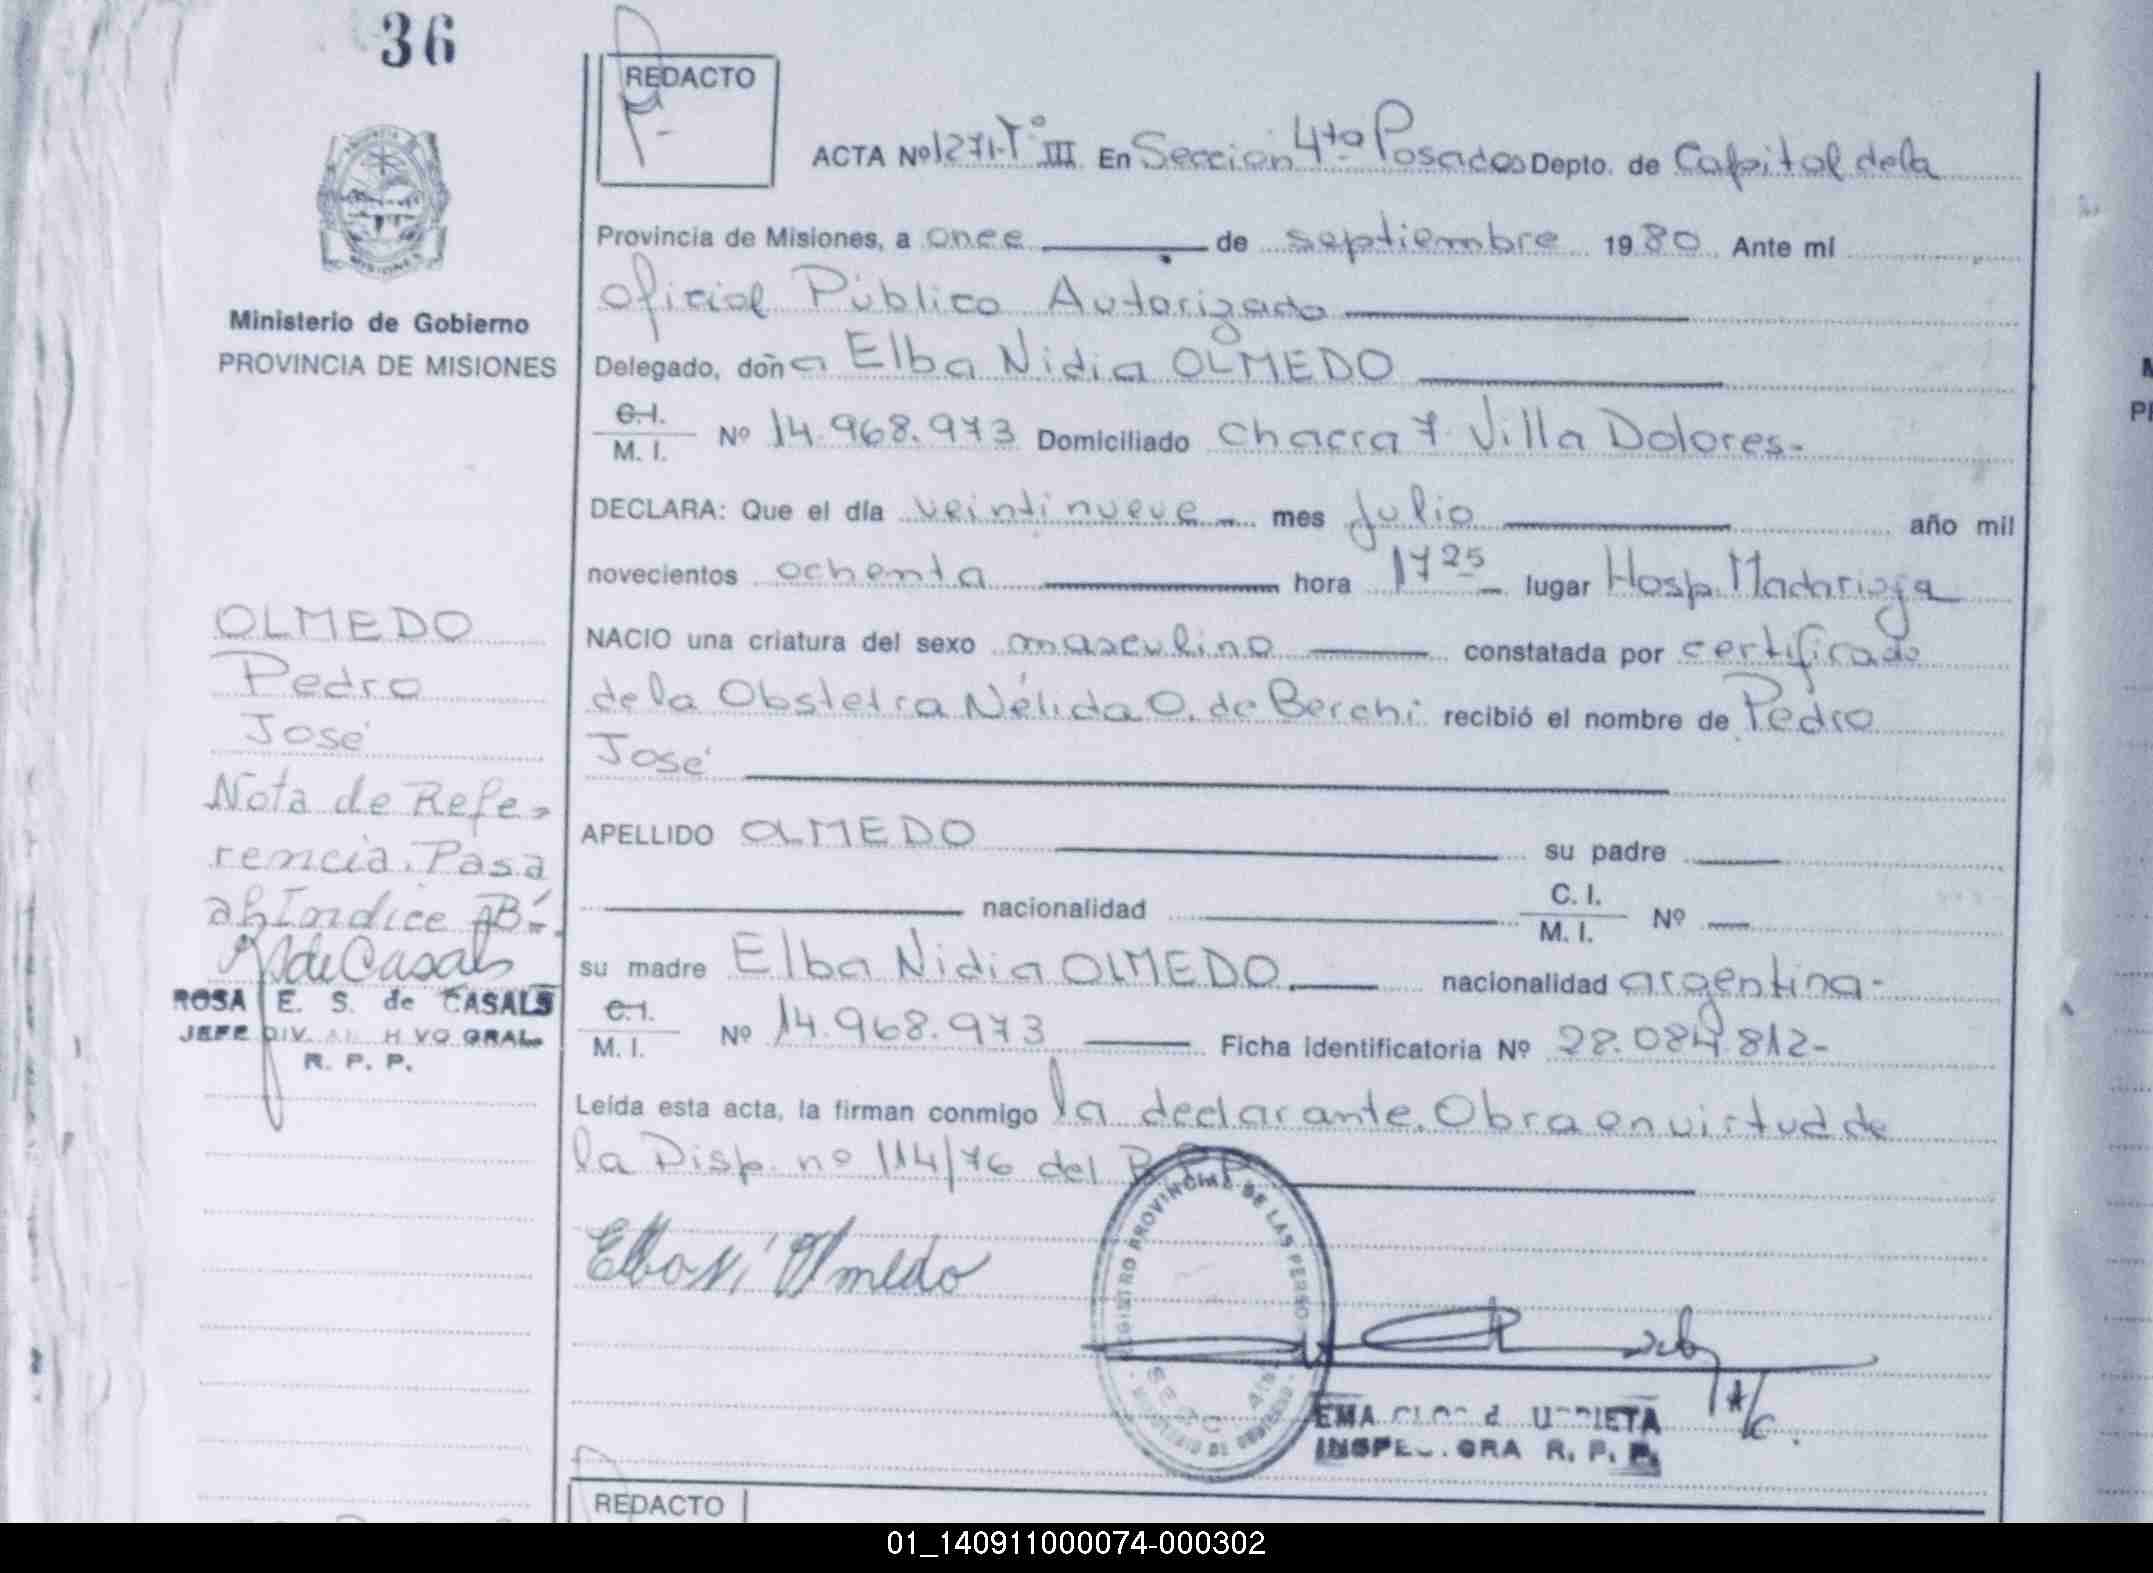 36
REDACTO
ACTA Nº 1271-Tº III En Sección 4ta Posadas Depto. de Capital de la
Provincia de Misiones, a once de septiembre 1980 Ante mí
Oficial Público Autorizado
Delegado, doña Elba Nidia OLMEDO
C.I.
M. I. Nº 14.968.973 Domiciliado Chacra 7 Villa Dolores-
DECLARA: Que el día veintinueve mes Julio año mil
novecientos ochenta hora 17 25 lugar Hosp. Madariaga
NACIO una criatura del sexo masculino constatada por certificado
de la Obstetra Nélida O. de Berchi recibió el nombre de Pedro
José
APELLIDO OLMEDO su padre
nacionalidad C. I.
M. I. Nº
su madre Elba Nidia OLMEDO. nacionalidad argentina-
C.I.
M. I. Nº 14.968.973 Ficha identificatoria Nº 28.084.812-
Leída esta acta, la firman conmigo la declarante. Obra en virtud de
la Disp. nº 114/76 del R.P.P.
Elba Ni Olmedo
REGISTRO PROVINCIAL DE LAS PERSO
MINISTERIO DE GOBIERNO
SECC 4ta
URRIETA
INSPECTORA R. P. P.
Ministerio de Gobierno
PROVINCIA DE MISIONES
OLMEDO
Pedro
José
Nota de Refe-
rencia. Pasa
al Indice "B".
R S de Casals
ROSA E. S. de CASALS
JEFE DIV. ARCHIVO GRAL.
R. P. P.
REDACTO
01_140911000074-000302